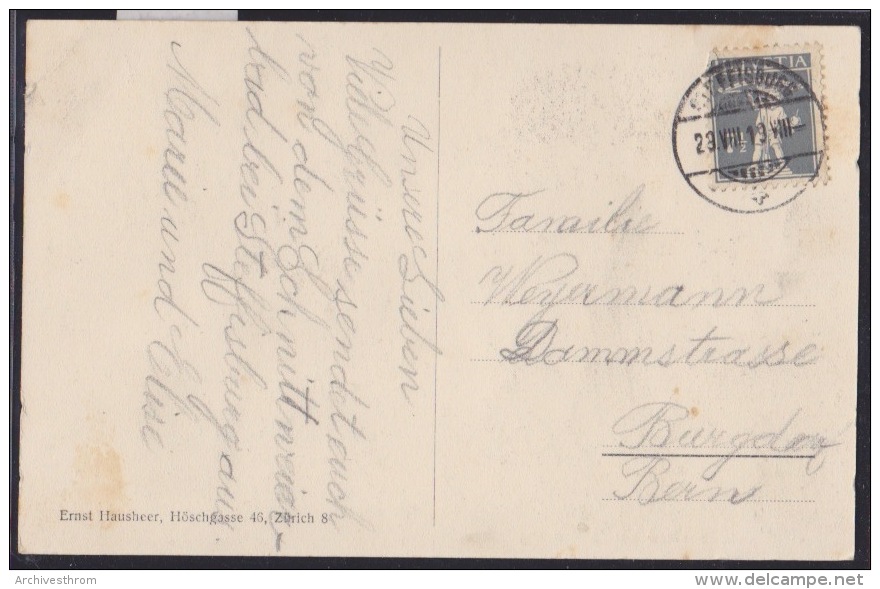 Unsere Lieben
Viele Grüsse sendet euch
von dem Schnittweier-
bad bei Steffisburg aus
Marie und Elise
HELVETIA
STEFFISBURG
23.VIII.19.VIII—
7½
Familie
Weyermann
Dammstrasse
Burgdorf
Bern
Ernst Hausheer, Höschgasse 46, Zürich 8
Archivesthrom
delcampe.net